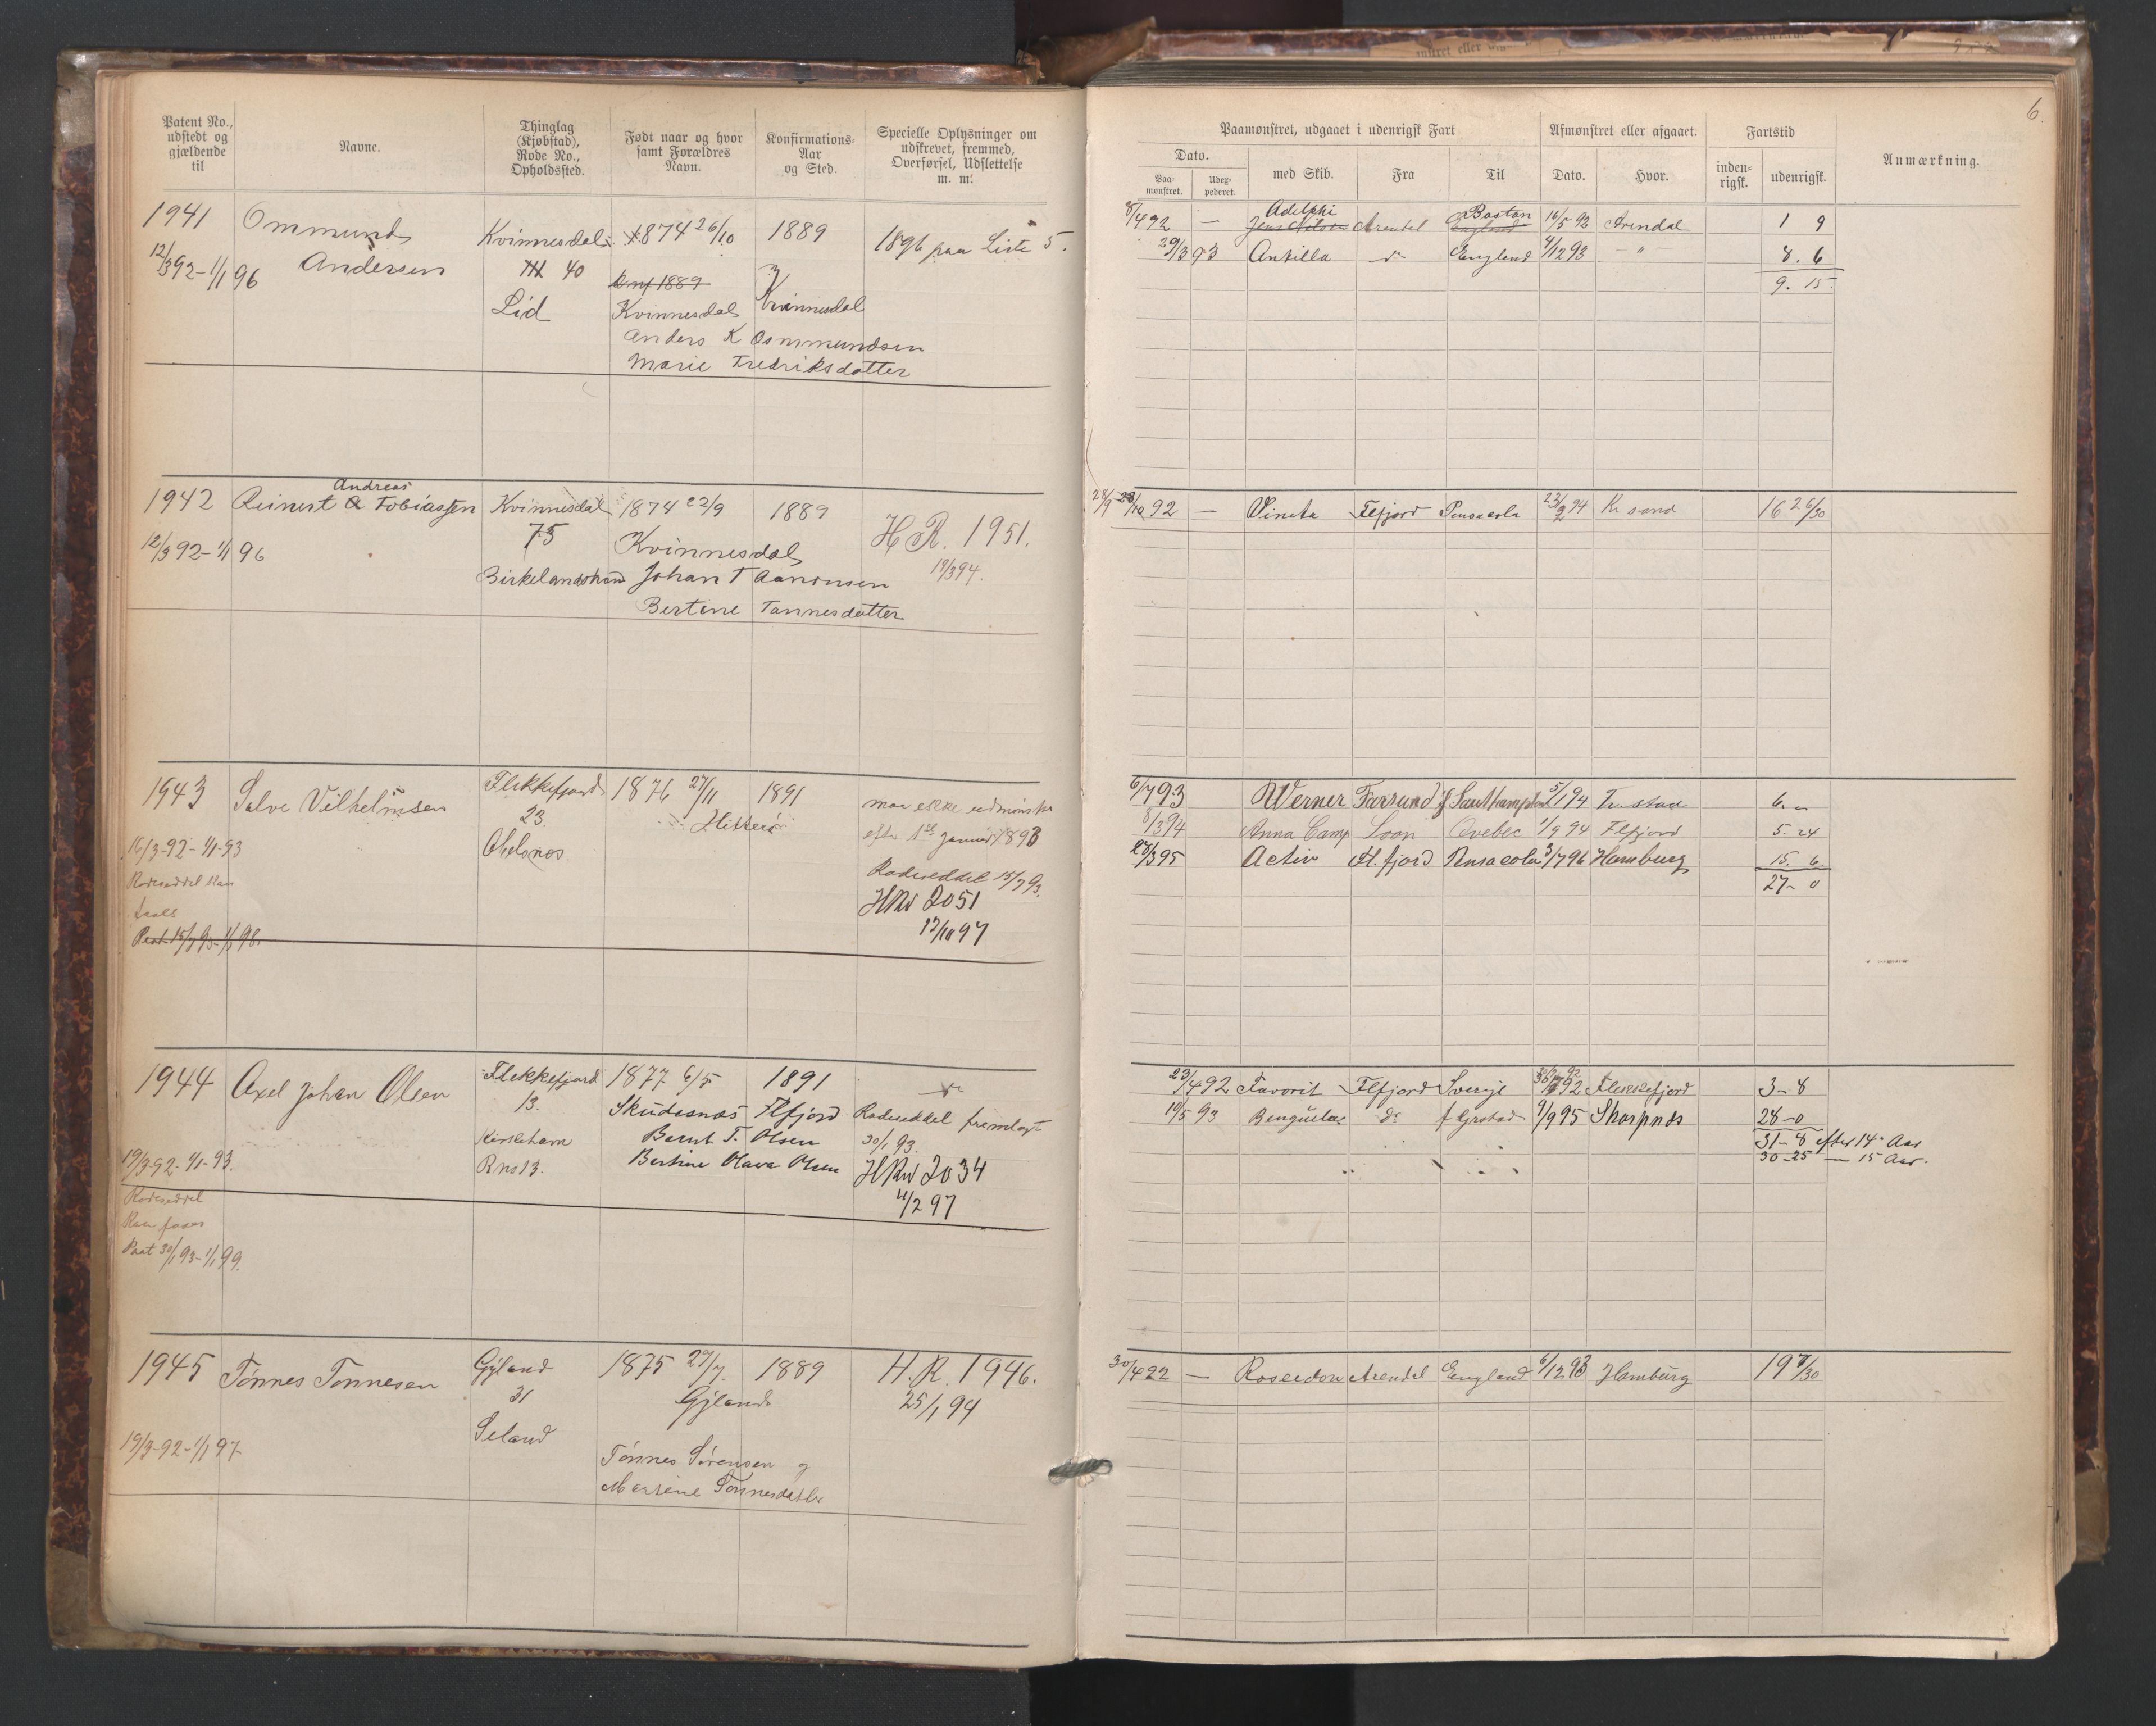 Patent No., udstedt og gjældende til
Navne.
Thinglag (Kjøbstad), Rode No., Opholdssted.
Født naar og hvor samt Forældres Navn.
Konfirmations-Aar og Sted.
Specielle Oplysninger om udskrevet, fremmed, Overførsel, Udslettelse m. m.
1941
Ommund Andersen
12/3 92 – 1/1 96
Kvinnesdal
40
Lid
1874 26/10
Conf 1889
Kvinnesdal
Anders K Ommundsen
Marie Fredriksdatter
1889
Kvinnesdal
1896 paa Liste 5.
1942
Andreas
Reinert A Tobiassen
12/3 92 – 1/1 96
Kvinnesdal
75
Birkelandstrand
1874 22/9
Kvinnesdal
Johan T Aanonsen
Bertine Tonnesdatter
1889
H R. 1951.
19/3 94.
1943
Salve Vilhelmsen
16/3-92 - 1/1-93
Rodeseddel
Pat. 15/7 93 - 1/1 98.
Flekkefjord
23.
1876 27/11
Hitterø
1891
maa ikke udmønstres
efter 1st Januar 1893
Rodeseddel 15/7 93.
HRw 2051
12/10 97
1944
Axel Johan Olsen
19/3-92 - 1/1-93.
Rodeseddel
Pat 30/1 93 - 1/1 99.
Flekkefjord
13.
Kirkehavn
R no 13.
1877 6/5
Skudesnæs
Bernt T. Olsen
Bertine Olava Olsen
1891
Flfjord
Rodeseddel fremlagt
30/1 93.
HRw 2034
4/2 97
1945
Tønnes Tønnesen
19/3-92 - 1/1 97
Gyland
31
Seland
1875 27/7.
Gyland
Tønnes Sørensen og
Martine Tønnesdatter
1889
H. R. 1946.
25/1 94
6.
Paamønstret, udgaaet i udenrigsk Fart
Afmønstret eller afgaaet.
Fartstid
Anmærkning.
Dato.
Paa-mønstret.
Udex-pederet.
med Skib.
Fra
Til
Dato.
Hvor.
inden-rigsk.
udenrigsk.
Adelphi
Boston
8/4 92 — Arendal England 16/5 92 Arendal 1 9
29/3 93 Antilla do England 4/12 93 — " — 8. 6
9. 15
28/9 28/10 92 — Vineta Flfjord Pensacola 23/2 94 Kr sand 16 26/30
6/7 93 Werner Farsund Southampton 5/1 94 6. –
8/3 94 Anna Camp Soon Qvebec 1/9 94 Flfjord 5. 24
28/3 95 Activ Fl.fjord Pensacola 3/7 96 Hamburg 15. 6
27 – 0
23/4 92 Favorit Flfjord Sverige 92 Flekkefjord 3 – 8
19/5 93 Benguela do 9/9 95 Skarpnes 28 – 0
31 – 8 efter 14 Aar
30 – 25 — 15 Aar.
30/4 92 — Poseidon Arendal England 6/12 93 Hamburg 19 7/30